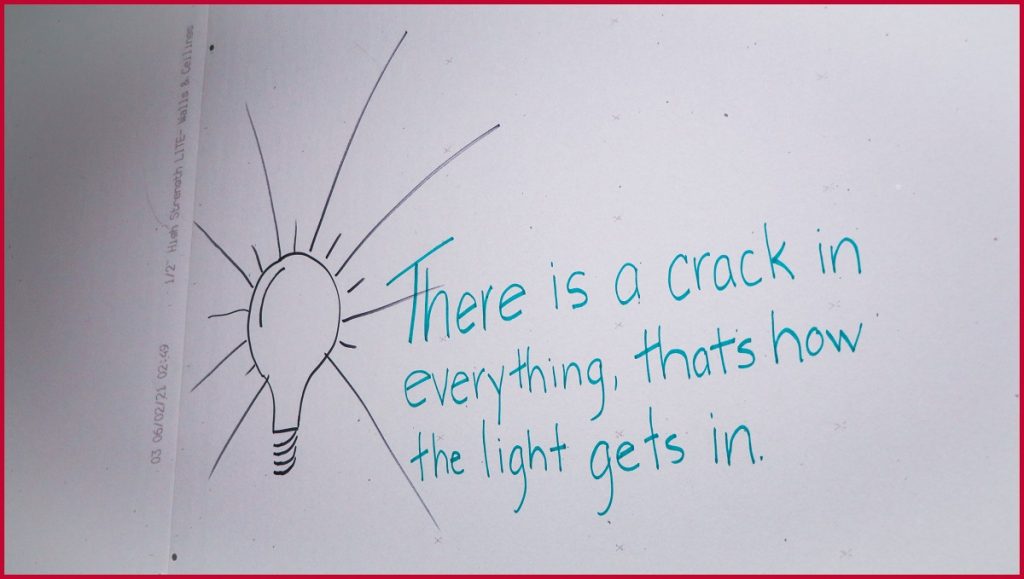 1/2" High Strength LITE- Walls & Ceilings
03 06/02/21 02:49
There is a crack in
everything, that's how
the light gets in.